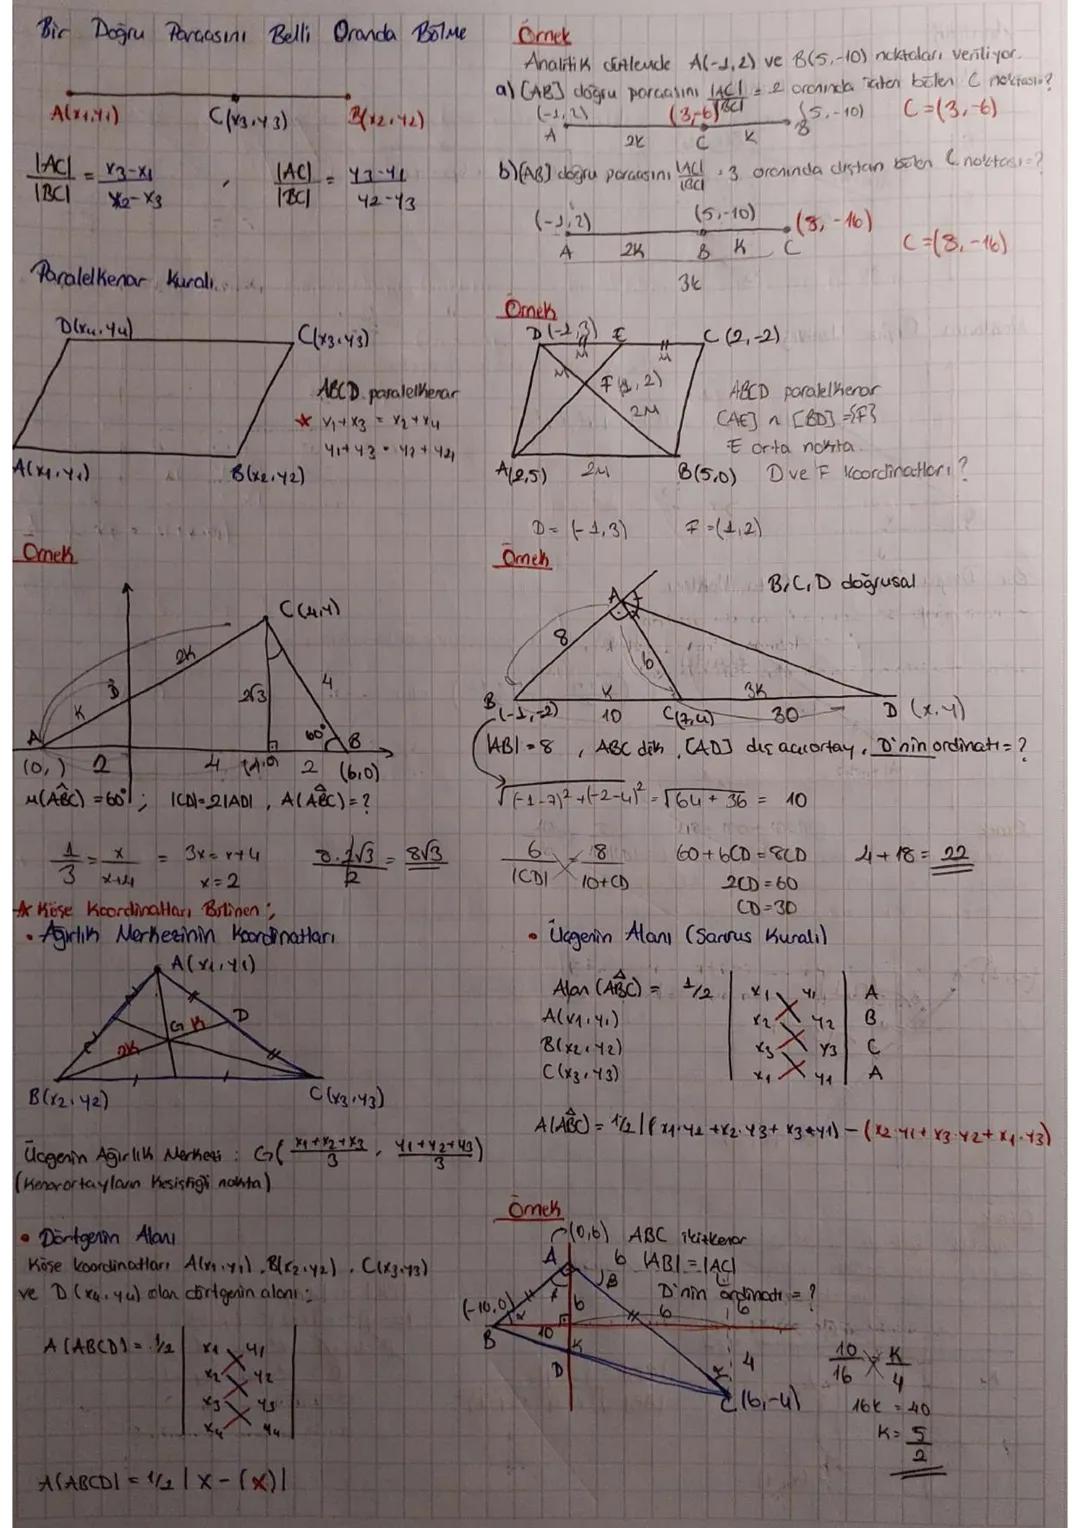 Bir Doğru Parçasını Belli Oranda Bölme
A(x1,y1) C(x3,y3) B(x2,y2)
|AC| / |BC| = x3-x1 / x2-x3 , |AC| / |BC| = y3-y1 / y2-y3
Örnek
Analitik düzlemde A(-1,2) ve B(5,-10) noktaları veriliyor.
a) [AB] doğru parçasını |AC| / |BC| = 2 oranında içten bölen C noktası?
(-1,2) (3,-6) (5,-10) C=(3,-6)
A 2K C K B
b) [AB] doğru parçasını |AC| / |BC| = 3 oranında dıştan bölen C noktası=?
(-1,2) (5,-10) (8,-16)
A 2K B K C C=(8,-16)
3K
Paralelkenar Kuralı
D(x4,y4) C(x3,y3)
ABCD paralelkenar
x1+x3 = x2+x4
y1+y3 = y2+y4
A(x1,y1) B(x2,y2)
Örnek
D(-1,3) E C(2,-2)
F(1,2)
2M
ABCD paralelkenar
[AE] ∩ [BD]={F}
E orta nokta
A(2,5) 2M B(5,0) D ve F koordinatları?
D=(-1,3) F=(1,2)
Örnek
C(4,4)
2K
D K 2√3 4
A 60° B
(0,) 2 4 2 (6,0)
m(ABC)=60° ; |CD|=2|AD| , A(ABC)=?
1/3 = x/x+4 = 3x=x+4 8.2√3 / 2 = 8√3
x=2
Örnek
B,C,D doğrusal
A
8 6
B K 3K D (x,y)
(-1,-2) 10 C(7,4) 30
|AB|=8 , ABC dik , [AD] dış açıortay , D'nin ordinatı=?
√(-1-7)²+(-2-4)² = √64+36 = 10
6 / |CD| = 8 / 10+CD 60+6CD=8CD 4+18=22
2CD=60
CD=30
* Köşe Koordinatları Bilinen ;
• Ağırlık Merkezinin Koordinatları
A(x1,y1)
G K D
2K
B(x2,y2) C(x3,y3)
Üçgenin Ağırlık Merkezi : G( x1+x2+x3 / 3 , y1+y2+y3 / 3 )
(Kenarortayların Kesiştiği nokta)
• Üçgenin Alanı (Sarrus Kuralı)
Alan (ABC) = 1/2 | x1 y1 | A
A(x1,y1) x2 y2 B
B(x2,y2) x3 y3 C
C(x3,y3) x1 y1 A
A(ABC) = 1/2 |(x1.y2+x2.y3+x3.y1) - (x2.y1+x3.y2+x1.y3)
• Dörtgenin Alanı
Köşe koordinatları A(x1,y1), B(x2,y2), C(x3,y3)
ve D(x4,y4) olan dörtgenin alanı ;
A(ABCD)= 1/2 | x1 y1 |
x2 y2
x3 y3
x4 y4
A(ABCD) = 1/2 | x - (x) |
Örnek
(0,6) ABC ikizkenar
A 6 |AB|=|AC|
D'nin ordinatı=?
(-10,0) 6 6 6
B 10 K
D 4
C(6,-4)
10 / 16 = K / 4
16K = 40
K = 5 / 2